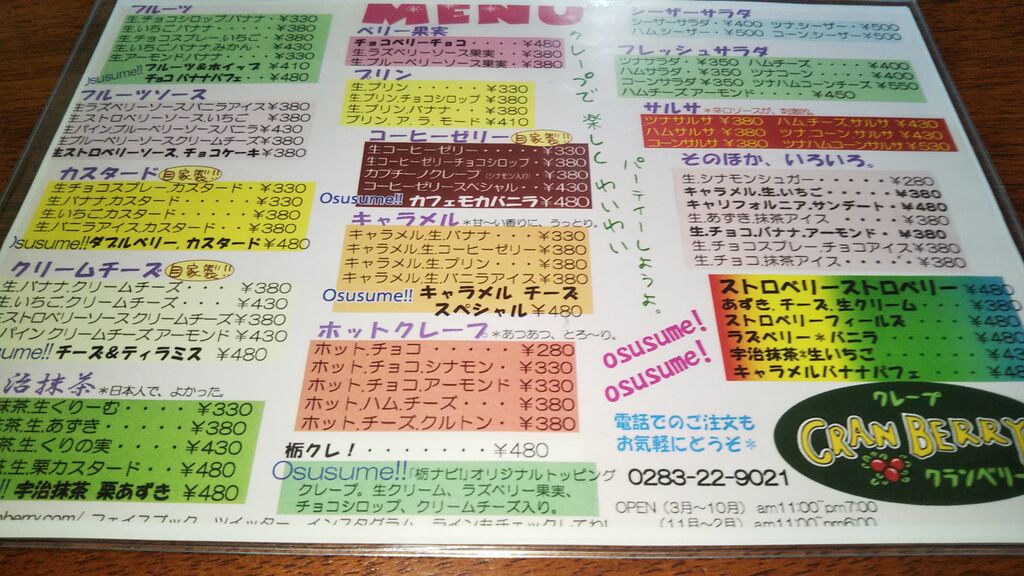 MENU
フルーツ
生.チョコシロップ.バナナ・¥330
生.いちごバナナ・・・・¥380
生.チョコスプレー.いちご・¥380
生.いちごバナナ.みかん・¥430
生.アーモンド.バナナ・・¥380
osusume!! フルーツ&ホイップ ¥410
チョコバナナパフェ・¥480
フルーツソース
生ラズベリーソース.バニラアイス¥380
生.ストロベリーソース.いちご ¥380
生パイン.ブルーベリーソース.バニラ¥430
生ブルーベリーソース.クリームチーズ¥380
生ストロベリーソース.チョコケーキ¥380
カスタード 自家製!!
生.チョコスプレー.カスタード・¥330
生.バナナ.カスタード・・・¥330
生.いちごカスタード・・・¥380
生.バニラアイス.カスタード・¥380
osusume!!ダブルベリー.カスタード¥480
クリームチーズ 自家製!!
生.バナナ.クリームチーズ・・・¥380
生.いちごクリームチーズ・・・¥430
生ストロベリーソースクリームチーズ¥380
パイン.クリームチーズアーモンド¥430
sume!! チーズ&ティラミス ¥480
治抹茶 *日本人で、よかった。
抹茶.生くりーむ・・・・¥330
茶.生.あずき・・・・・¥380
茶.生くりの実・・・・・¥430
.生.栗カスタード・・・¥480
!! 宇治抹茶 栗あずき ¥480
ベリー果実
チョコベリーチョコ・・・・¥480
生.ラズベリーソース果実・・¥380
生.ブルーベリーソース果実・¥380
プリン
生.プリン・・・・・・¥330
生.プリン.チョコシロップ・¥380
生.プリン.バナナ・・・¥380
プリン.ア.ラ.モード・¥410
コーヒーゼリー 自家製!!
生コーヒーゼリー・・・・・¥330
生コーヒーゼリーチョコシロップ・¥380
カプチーノクレープ(シナモン入り)¥380
コーヒーゼリースペシャル・・¥430
Osusume!! カフェモカバニラ¥480
キャラメル *甘~い香りに、うっとり。
キャラメル.生.バナナ・・・¥330
キャラメル.生.コーヒーゼリー・¥380
キャラメル.生.プリン・・・¥380
キャラメル.生.バニラアイス¥380
Osusume!! キャラメル チーズ
スペシャル ¥480
ホットクレープ *あつあつ、とろ~り。
ホット.チョコ・・・・・・¥280
ホット.チョコ.シナモン・・¥330
ホット.チョコ.アーモンド・¥380
ホット.ハム.チーズ・・・・¥380
ホット.チーズ.クルトン・・¥380
栃クレ!・・・・・・・¥480
Osusume!!「栃ナビ!」オリジナルトッピング
クレープ。生クリーム、ラズベリー果実、
チョコシロップ、クリームチーズ入り。
クレープで 楽しく わいわい
パーティーしようよ。
シーザーサラダ
シーザーサラダ・¥400 ツナシーザー・¥500
ハムシーザー・¥500 コーン.シーザー・¥500
フレッシュサラダ
ツナサラダ・¥350 ハムチーズ・・・¥400
ハムサラダ・¥350 ツナコーン・・・¥400
コーンサラダ・¥350 ツナハムコーンチーズ ¥550
ハムチーズ.アーモンド・・・¥450
サルサ *辛口ソースが、刺激的。
ツナサルサ ¥380 ハムチーズ.サルサ ¥430
ハムサルサ ¥380 ツナコーン.サルサ ¥430
コーンサルサ ¥380 ツナハムコーンサルサ ¥530
そのほか、いろいろ。
生.シナモンシュガー・・・・・¥280
キャラメル.生.いちご・・・・¥380
キャリフォルニア.サンデート・¥480
生.あずき.抹茶アイス・・・・¥380
生.チョコ.バナナ.アーモンド・¥380
生.チョコスプレー.チョコアイス¥380
生.チョコ.抹茶アイス・・・・¥380
ストロベリーストロベリー ¥480
あずき.チーズ.生クリーム・¥380
ストロベリーフィールズ ¥480
ラズベリー*バニラ ¥480
宇治抹茶*生いちご・・¥430
キャラメルバナナパフェ ¥480
osusume!
osusume!
電話でのご注文も
お気軽にどうぞ*
0283-22-9021
OPEN (3月~10月) am11:00~pm7:00
(11月~2月) am11:00~pm6:00
クレープ
CRAN BERRY
クランベリー
berry.com/ フェイスブック ツイッター インスタグラム ラインもチェックしてね!